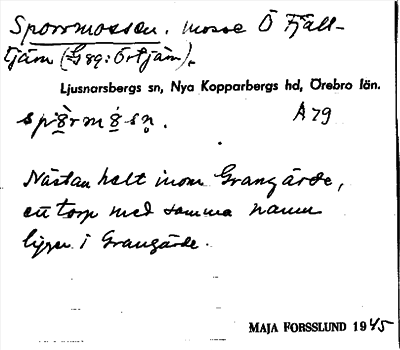 Sporrmossen. mosse Ö Fjäll-
tjärn (Gsq: Örtjärn).
Ljusnarsbergs sn, Nya Kopparbergs hd, Örebro län.
A 79
Nästan helt inom Grangärde,
ett torp med samma namn
ligger i Grangärde.
MAJA FORSSLUND 1945